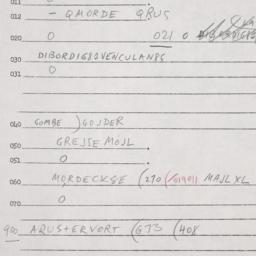 011
012 - QMORDE QBUS
020 0 021 0
030 DIBORDIG80VENCULAN8S
031 0
040 GOMBE ) GOJDER
050 GREJSE MOJL
051 0
060 MORDECKSE (270 (019011 MAJL XL
070 0
900 AQUSTERVORT (673 (408